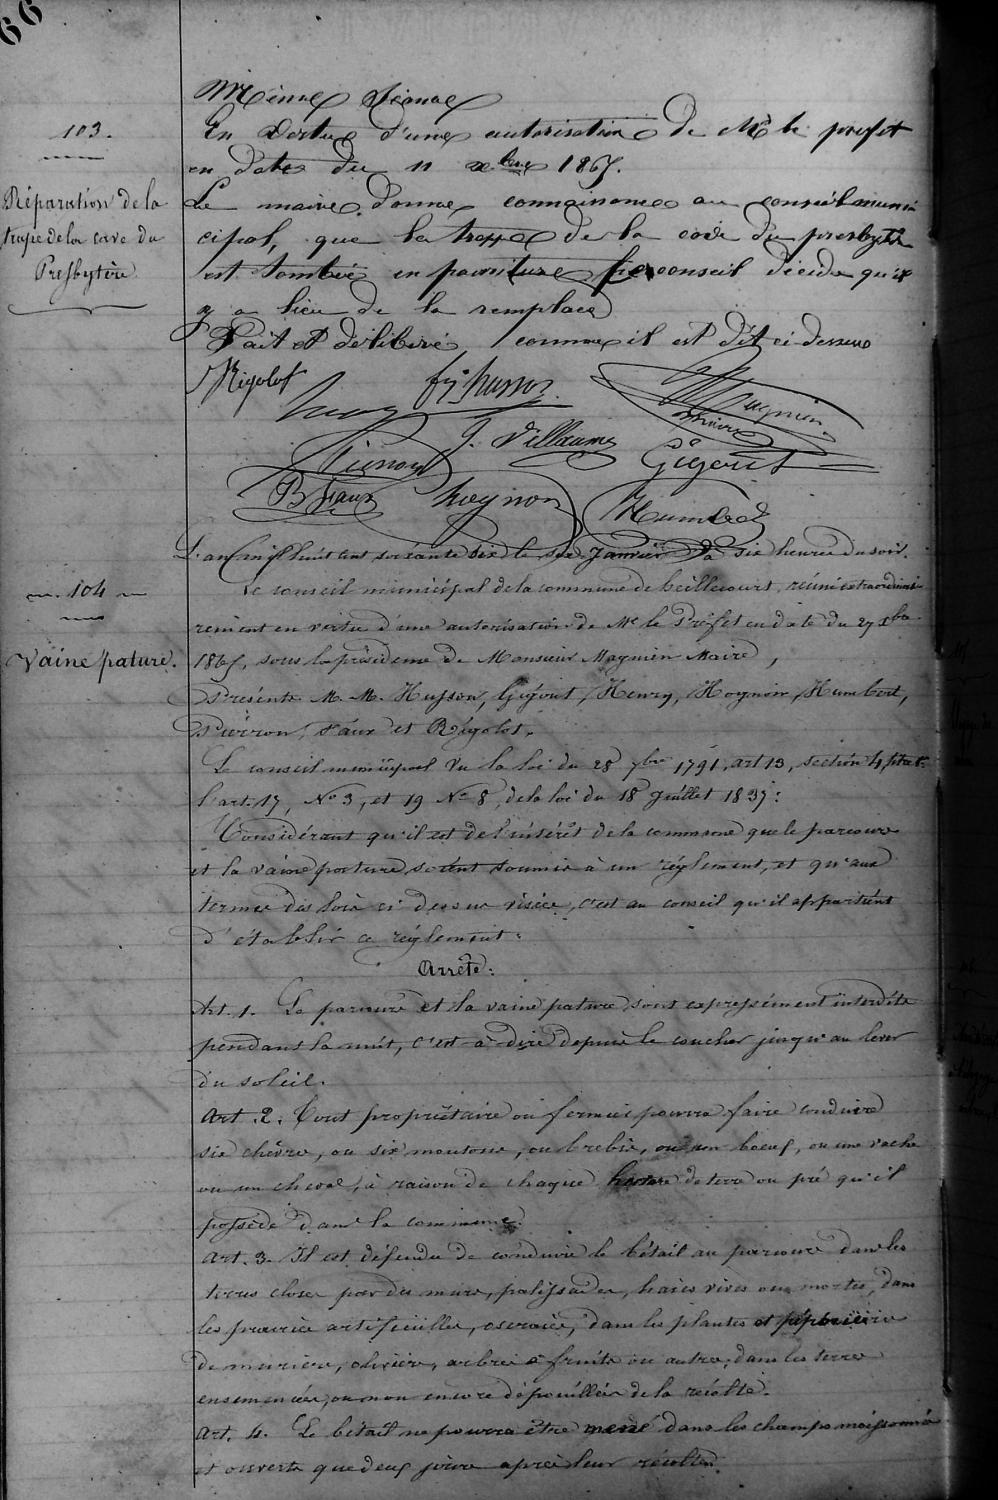 66
103.
Réparation de la
trape de la cave du
Presbytère
Même séance
En vertu d'une autorisation de Mr le préfet
en date du 11 xbre 1869.
Le maire donne connaissance au conseil muni
cipal, que la trappe de la cave du presbytère
est tombée en pourriture, le conseil décide qu'il
y a lieu de la remplacer
Fait et délibéré, comme il est dit ci-dessus
Rigolot fs husson Magnien
maire
henry J. Villaume Gégout
Pierron
B Faux hognon Humbert
104
Vaine pature.
L'an mil huit cent soixante dix le six Janvier à six heures du soir.
Le conseil municipal de la commune de heillecourt, réuni extraordinai-
rement en vertu d'une autorisation de Mr le Préfet en date du 27 xbre
1869, sous la présidence de Monsieur Magnien Maire,
Présents M. M. Husson, Gégout, Henry, Hognon, Humbert,
Pierron, Faux et Rigolot.
Le conseil municipal Vu la loi du 28 7bre 1791, art 13, section 4,
l'art. 17, No 3, et 19 No 8, de la loi du 18 Juillet 1837:
Considérant qu'il est de l'intérêt de la commune que le parcours
et la vaine pature soient soumis à un réglement, et qu'aux
termes des lois ci dessus visées, c'est au conseil qu'il appartient
d'établir ce réglement:
Arrête:
Art. 1. Le parcours et la vaine pature sont expressément interdits
pendant la nuit, c'est à dire depuis le coucher jusqu'au lever
du soleil.
Art. 2. Tout propriétaire ou fermier pourra faire conduire
six chèvres, ou six moutons, ou brebis, ou un boeuf, ou une vache
ou un cheval, à raison de chaque hectare de terre ou pré qu'il
possède dans la commune.
Art. 3. Il est défendu de conduire le bétail au parcours dans les
terres closes par des murs, palissades, haies vives ou mortes, dans
les prairies artificielles, oseraies, dans les plantes et pépinière
de muriers, oliviers, arbres à fruits ou autres, dans les terres
ensemencées, ou non encore dépouillées de la récolte.
Art. 4. Le bétail ne pourra être mené dans les champs moissonnés
et ouverts que deux jours après leur récolte.